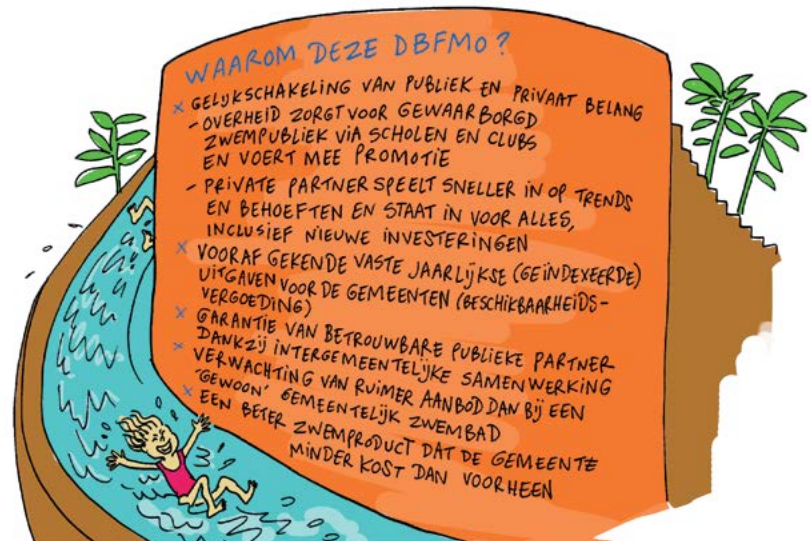 WAAROM DEZE DBFMO?
x GELIJKSCHAKELING VAN PUBLIEK EN PRIVAAT BELANG
- OVERHEID ZORGT VOOR GEWAARBORGD
ZWEMPUBLIEK VIA SCHOLEN EN CLUBS
EN VOERT MEE PROMOTIE
- PRIVATE PARTNER SPEELT SNELLER IN OP TRENDS
EN BEHOEFTEN EN STAAT IN VOOR ALLES,
INCLUSIEF NIEUWE INVESTERINGEN
x VOORAF GEKENDE VASTE JAARLIJKSE (GEÏNDEXEERDE)
UITGAVEN VOOR DE GEMEENTEN (BESCHIKBAARHEIDS-
VERGOEDING)
x GARANTIE VAN BETROUWBARE PUBLIEKE PARTNER
DANKZIJ INTERGEMEENTELIJKE SAMENWERKING
x VERWACHTING VAN RUIMER AANBOD DAN BIJ EEN
'GEWOON' GEMEENTELIJK ZWEMBAD
x EEN BETER ZWEMPRODUCT DAT DE GEMEENTE
MINDER KOST DAN VOORHEEN